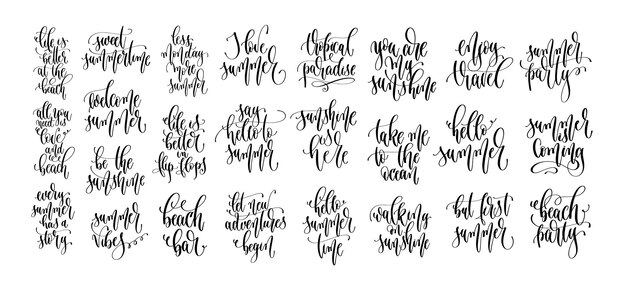 life is
better
at the
beach
all you
need is
love
and
beach
every
summer
has a
story
sweet
summertime
welcome
summer
be the
sunshine
summer
vibes
less
monday
more
summer
life is
better
in
flip flops
beach
bar
I love
summer
say
hello to
summer
let new
adventures
begin
tropical
paradise
sunshine
is
here
hello
summer
time
you are
my
sunshine
take me
to the
ocean
walking
on
sunshine
enjoy
travel
hello
summer
but first
summer
summer
party
summer
is
coming
beach
party